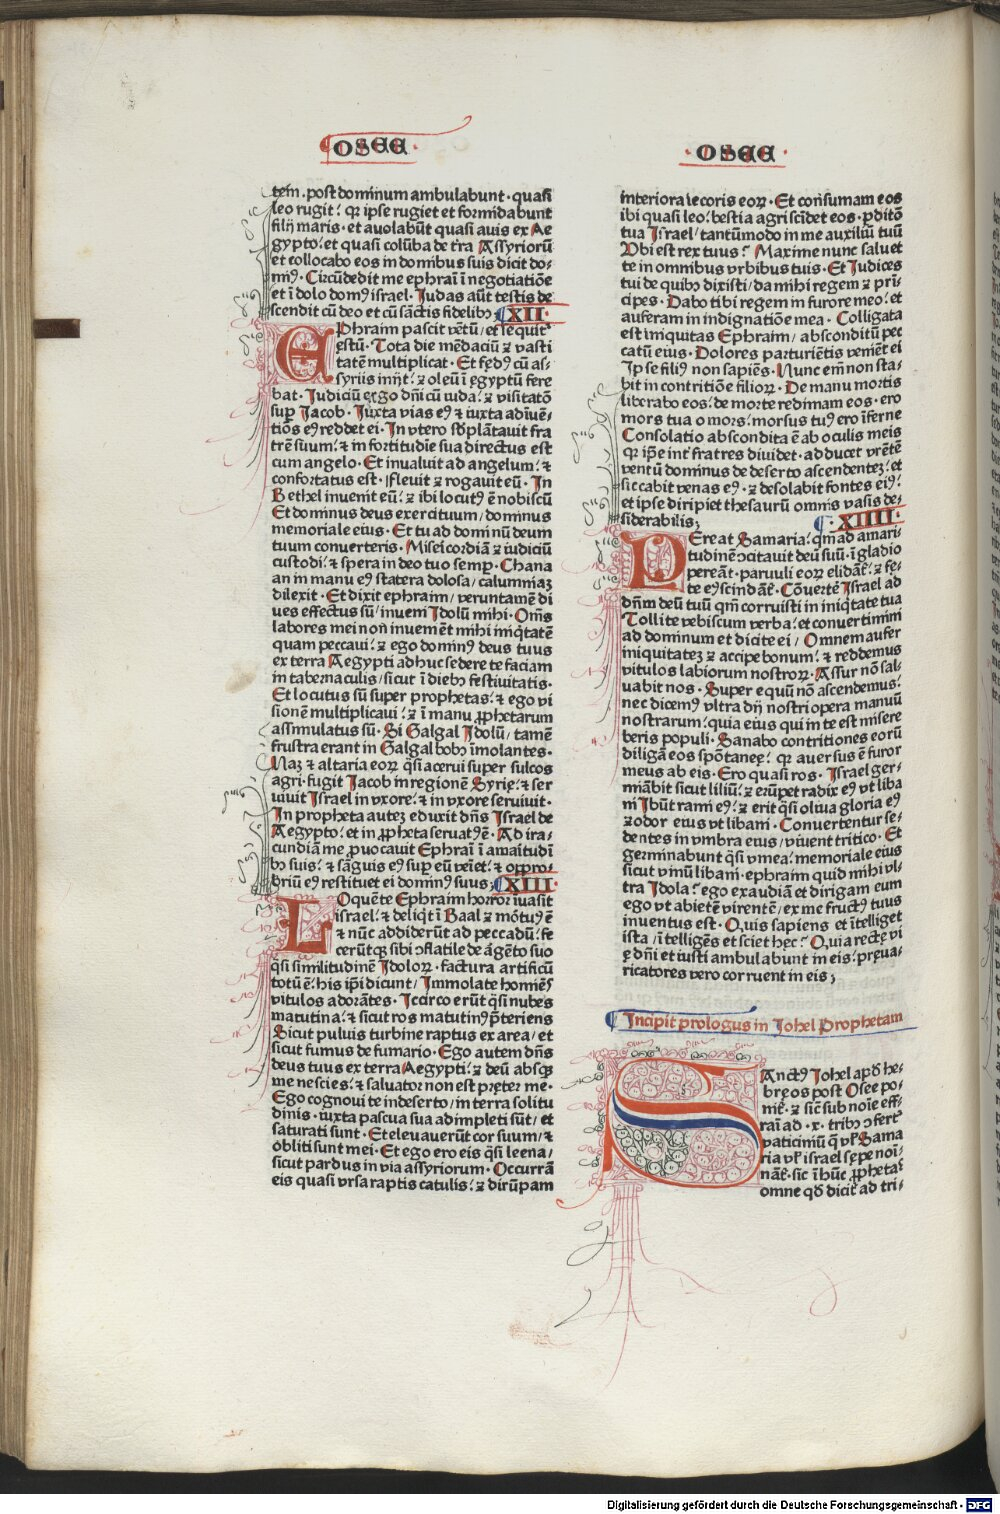 OSEE
tem. post dominum ambulabunt · quasi
leo rugit: qꝛ ipse rugiet et formidabunt
filij maris · et auolabūt quasi auis ex Ae
gypto: et quasi colūba de t'ra Assyrioꝛū
et collocabo eos in domibus suis dicit do-
minꝰ · Circūdedit me ephraī ī negotiatiōe
et ī dolo domꝰ israel · Judas aūt testis de
scendit cū deo et cū sāctis fidelibꝫ XII ·
EPhraim pascit vētū / et sequit'
ęstū · Tota die mēdaciū ⁊ vasti
tatē multiplicat · Et fędꝰ cū as-
syriis inijt: ⁊ oleū ī ęgyptū fere
bat · Judiciū ęrgo dñi cū iuda: ⁊ visitatō
sup̱ Jacob · Juxta vias eꝰ ⁊ iuxta adīuē-
tiōs eꝰ reddet ei · In vtero sb̄plātauit fra
trē suum: ⁊ in fortitudīe sua directus est
cum angelo · Et inualuit ad angelum: ⁊
confortatus est · fleuit ⁊ rogauit eū · In
Bethel inuenit eū: ⁊ ibi locutꝰ ē nobiscū
Et dominus deus exercituum / dominus
memoriale eius · Et tu ad dominū deum
tuum conuerteris · Misericordiā ⁊ iudiciū
custodi: ⁊ spera in deo tuo semp̱ · Chana
an in manu eꝰ statera dolosa / calumniaꝫ
dilexit · Et dixit ephraim / veruntamē di
ues effectus sū / inueni Jdolū mihi · Om̄s
labores mei non inueniēt mihi iniq̇tatē
quam peccaui: ⁊ ego dominꝰ deus tuus
ex terra Aegypti adhuc sedere te faciam
in tabernaculis / sicut ī diebꝫ festiuitatis ·
Et locutus sū super prophetas: ⁊ ego vi
sionē multiplicaui: ⁊ ī manu ꝓphetarum
assimulatus sū · Si Galgal Jdolū / tamē
frustra erant in Galgal bobꝫ īmolantes ·
Naꝫ ⁊ altaria eoꝝ q̄si acerui super sulcos
agri · fugit Jacob in regionē Syrię: ⁊ ser
uiuit Israel in vxore: ⁊ in vxore seruiuit ·
In propheta auteꝫ eduxit dn̄s Israel de
Aegypto: et in ꝓpheta seruatꝰ ē · Ad ira-
cundiā me ꝓuocauit Ephraī ī amaitudī
bꝫ suis: ⁊ sāguis eꝰ sup̱ eū vēiet: ⁊ oppro-
briū eꝰ restituet ei dominꝰ suus; XIII ·
LOquēte Ephraim horror īuasit
israel: ⁊ deliq̇t ī Baal ⁊ mōtuꝰ ē
⁊ nūc addiderūt ad peccādū: fe
cerūtqꝫ sibi ɔflatile de ągēto suo
q̄si similitudinē Jdoloꝝ · factura artificū
totū ē: his ip̄i dicunt / Jmmolate homieš
vitulos adorātes · Jccirco erūt q̄si nubes
matutina: ⁊ sicut ros matutinꝰ p̱teriens
Sicut puluis turbine raptus ex area / et
sicut fumus de fumario · Ego autem dn̄s
deus tuus ex terra Aegypti: ⁊ deū absqꝫ
me nescies: ⁊ saluator non est pręter me ·
Ego cognoui te in deserto / in terra solitu
dinis · iuxta pascua sua adimpleti sūt / et
saturati sunt · Et eleuauerūt cor suum / ⁊
obliti sunt mei · Et ego ero eis q̄si leena /
sicut pardus in via assyriorum · Occurrā
eis quasi vrsa raptis catulis: ⁊ dirūpam
· OSEE ·
interiora iecoris eoꝝ · Et consumam eos
ibi quasi leo: bestia agri scīdet eos · p̱ditō
tua Israel / tantūmodo in me auxiliū tuū
Vbi est rex tuus? Maxime nunc saluet
te in omnibus vrbibus tuis · Et Judices
tui de quibꝫ dixisti / da mihi regem ⁊ pri-
cipes · Dabo tibi regem in furore meo: et
auferam in indignatiōe mea · Colligata
est iniquitas Ephraim / absconditū pec
catū eius · Dolores parturiētis veniēt ei
Jpse filiꝰ non sapiēs · Nunc em̄ non sta-
bit in contritiōe filioꝝ · De manu mortis
liberabo eos: de morte redimam eos · ero
mors tua o mors: morsus tuꝰ ero īferne
Consolatio abscondita ē ab oculis meis
qꝛ ip̄e int' fratres diuidet · adducet vrētē
ventū dominus de deserto ascendenteꝫ: et
siccabit venas eꝰ · ⁊ desolabit fontes eiꝰ:
et ipse diripiet thesaurū omnis vasis de-
siderabilis; · XIIII ·
PEreat Samaria: qm̄ ad amari-
tudinē ɔcitauit deū suū · ī gladio
pereāt · paruuli eoꝝ elidāt' · ⁊ fę-
te eꝰ scindāt' · Cōuerte Israel ad
dn̄m deū tuū qm̄ corruisti in iniq̇tate tua
Tollite vobiscum verba: et conuertimini
ad dominum et dicite ei / Omnem aufer
iniquitateꝫ ⁊ accipe bonum: ⁊ reddemus
vitulos labiorum nostroꝝ · Assur nō sal-
uabit nos · Super equū nō ascendemus:
nec dicemꝰ vltra dij nostri opera manuū
nostrarum: quia eius qui in te est misere
beris populi · Sanabo contritiones eoꝛū
diligā eos spōtanee: qꝛ auersus ē furor
meus ab eis · Ero quasi ros · Israel ger-
miābit sicut liliū: ⁊ erūpet radix eꝰ vt liba
ni Jbūt rami eꝰ: ⁊ erit q̄si oliua gloria eꝰ
⁊ odor eius vt libani · Conuertentur se-
dentes in vmbra eius / viuent tritico · Et
germinabunt q̄si vinea: memoriale eius
sicut vinū libani · ephraim quid mihi vl-
tra Jdola: ego exaudiā et dirigam eum
ego vt abietē virentē / ex me fructꝰ tuus
inuentus est · Quis sapiens et ītelliget
ista / ītelligēs et sciet hęc? Quia rectę vi
ę dn̄i et iusti ambulabunt in eis: pręua-
ricatores vero corruent in eis;
Jncipit prologus in Johel Prophetam
SAnctꝰ Johel apd' he-
bręos post Osee po-
nit' · ⁊ sic̄ sub noīe eff-
raī ad · x · tribꝫ ɔfert'
vaticiniū q̄ vl' Sama
ria vl' israel sępe noī-
nāt' · sic ī hūc ꝓphetaꝫ
omne qd̄ dicit' ad tri-
Digitalisierung gefördert durch die Deutsche Forschungsgemeinschaft - DFG